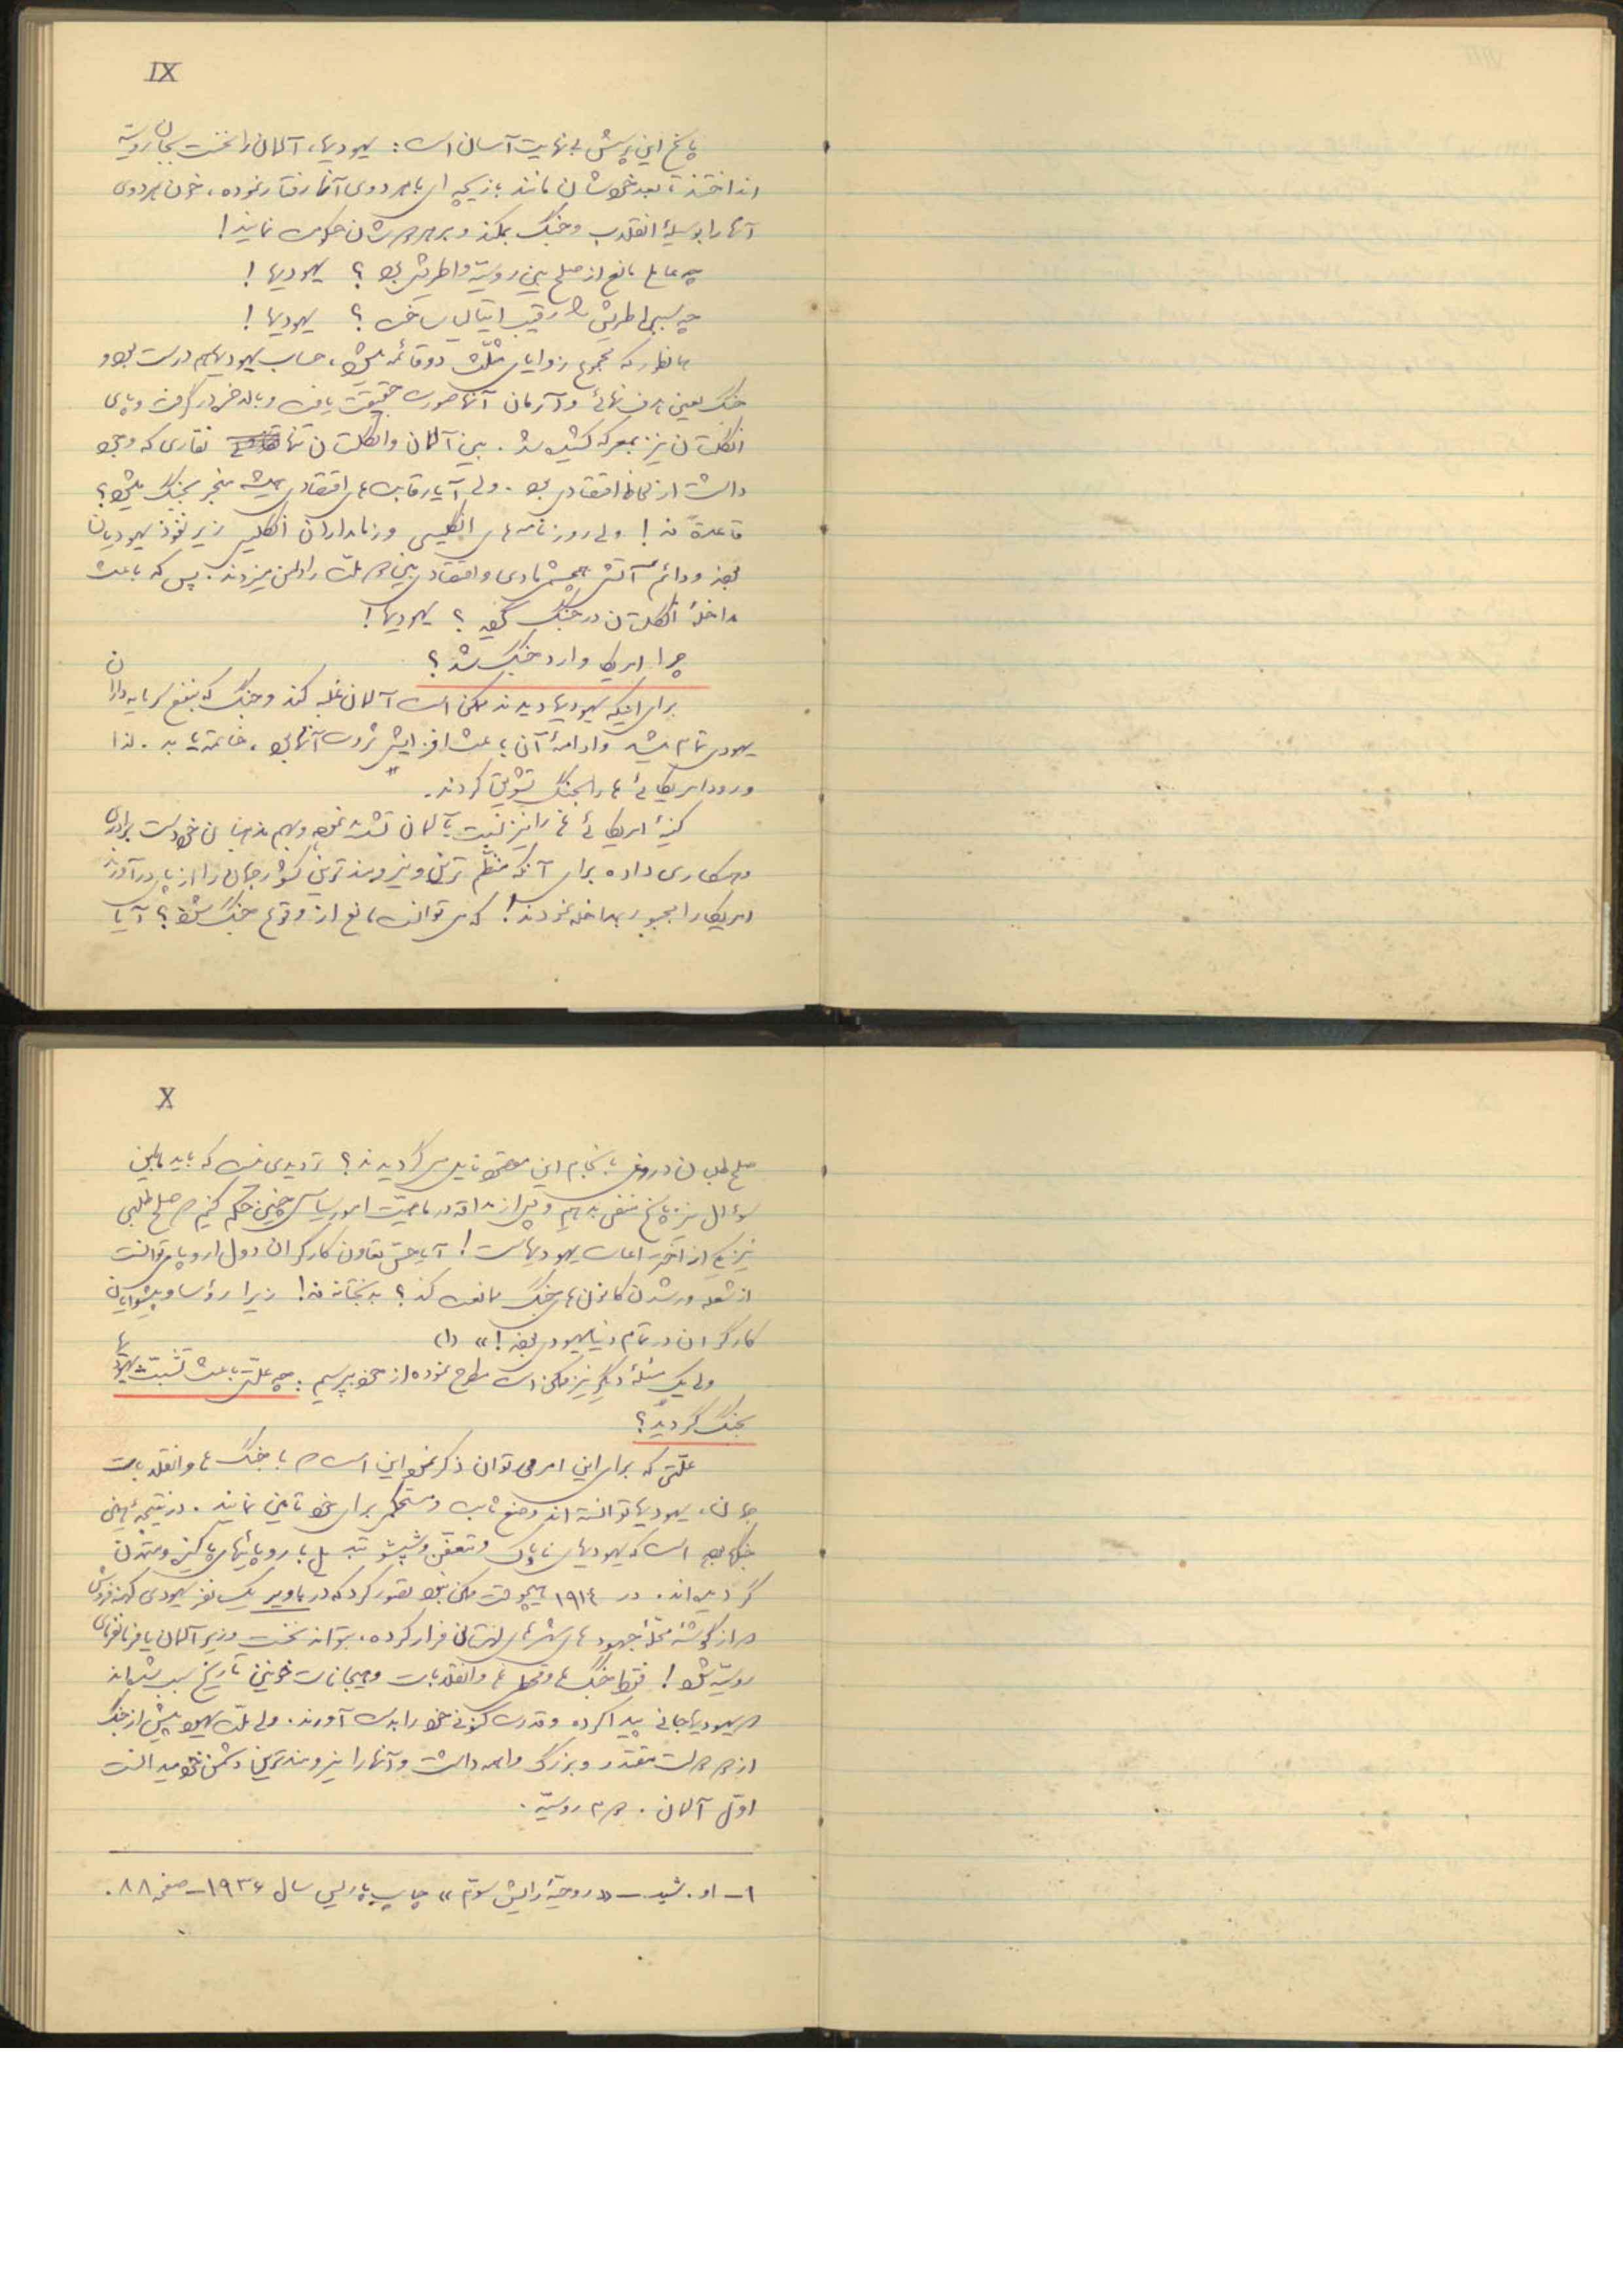 IX
پاسخ این پرسش بی‌نهایت آسان است: یهودیها، آلمان را نخست بجان روسیّه
انداختند، بعد خودشان مانند بازیچه‌ای با هر دوی آنها رفتار نموده، خون هر دوی
آنها را بوسیلهٔ انقلاب و جنگ بمکند و بر هر دوشان حکومت نمایند!
چه عامل مانع از صلح بین روسیّه و اطریش بود؟ یهودیها!
چه سبب اطریش را رقیب ایتالیا ساخت؟ یهودیها!
همانطور که مجموع زوایای مثلّث دو قائمه میشود، حساب یهودیها هم درست بود و
جنگ یعنی هدف نهائی و آرمان آنها صورت حقیقت یافت و بالاخره درگرفت و پای
انگلستان نیز بمعرکه کشیده شد. بین آلمان و انگلستان تنها نقاری که وجود
داشت از لحاظ اقتصادی بود. ولی آیا رقابت‌های اقتصادی همیشه منجر بجنگ میشود؟
قاعدةً نه! ولی روزنامه‌های انگلیسی و زمامداران انگلیس زیر نفوذ یهودیان
بوده و دائم آتش همچشمی مادی و اقتصادی بین دو ملّت را دامن میزدند. پس که باعث
مداخلهٔ انگلستان در جنگ گردید؟ یهودیها!
چرا امریکا وارد جنگ شد؟
برای اینکه یهودیها دیدند ممکن است آلمان غلبه کند و جنگ که بنفع سرمایه‌داران
یهودی تمام میشد و ادامهٔ آن باعث افزایش ثروت آنها بود، خاتمه یابد. لذا
ورود امریکائی‌ها را بجنگ تشویق کردند.
کینهٔ امریکائی‌ها را نیز نسبت بآلمان تشدید نموده و بهم مذهبان خود دست برادری
و همکاری داده برای آنکه منظّم‌ترین و نیرومندترین کشور جهان را از پای درآورند
امریکا را مجبور بمداخله نمودند! که می‌توانست مانع از وقوع جنگ شود؟ آیا
X
صلح‌طلبان دروغی بانجام این مقصود نایل میگردیدند؟ تردیدی نیست که باید باین
سؤال نیز پاسخ منفی بدهیم و پس از مداقه در ماهیّت امور سیاسی چنین حکم کنیم که صلح‌طلبی
نیز یکی از اختراعات یهودیهاست! آیا حسّ تعاون کارگران دول اروپا میتوانست
از شعله‌ور شدن کانون‌های جنگ ممانعت کند؟ بدبختانه نه! زیرا رؤسا و پیشوایان
کارگران در تمام دنیا یهودی بودند!» (۱)
ولی یک مسئلهٔ دیگر نیز ممکن است مطرح نموده از خود بپرسیم: چه علّتی باعث تشبّث یهودیها
بجنگ گردید؟
علّتی که برای این امر می‌توان ذکر نمود این است که با جنگ‌ها و انقلابات
جهان، یهودیها توانسته‌اند وضع ثابت و مستحکمی برای خود تامین نمایند. در نتیجهٔ همین
جنگها بوده است که یهودیهای ناپاک و متعفّن و شپشو تبدیل باروپائیهای پاکیزه و متمدّن
گردیده‌اند. در ۱۹۱٤ هیچوقت ممکن نبود تصوّر کرد که در باویر یک نفر یهودی کهنه‌فروش
که از گوشهٔ محلّهٔ جهودهای شهرهای لهستان فرار کرده، بتواند نخست وزیر آلمان یا فرمانفرمای
روسیّه شود! فقط جنگ‌ها و قحطی‌ها و انقلابات و هیجانات خونین تاریخ سبب شده‌اند
که یهودیها جانی پیدا کرده و قدرت کنونی خود را بدست آورند. ولی ملّت یهود پیش از جنگ
از دو دولت مقتدر و بزرگ واهمه داشت و آنها را نیرومندترین دشمن خود میدانست
اوّل آلمان. دوم روسیّه.
۱- او. شید - «روحیّهٔ رایش سوّم» چاپ پاریس سال ۱۹۳۶ - صفحه ۸۸.